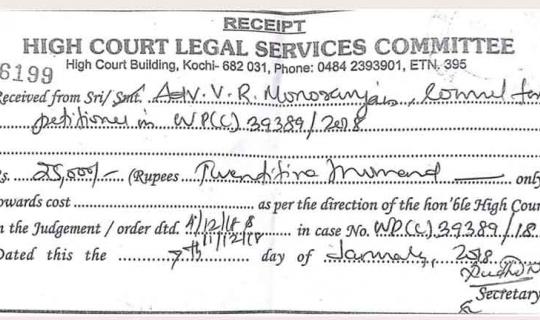 RECEIPT
HIGH COURT LEGAL SERVICES COMMITTEE
6199
High Court Building, Kochi- 682 031, Phone: 0484 2393901, ETN. 395
Received from Sri/ Smt. Adv. V. R. Manoranjan, Counsel for
petitioner in WP(C) 39389/2018
Rs. 25,000/- (Rupees Twentyfive thousand only
towards cost as per the direction of the hon'ble High Court
in the Judgement / order dtd. 4/12/18 &
11/12/18 in case No. WP(C) 39389/18
Dated this the 7th day of January, 2018.
Secretary